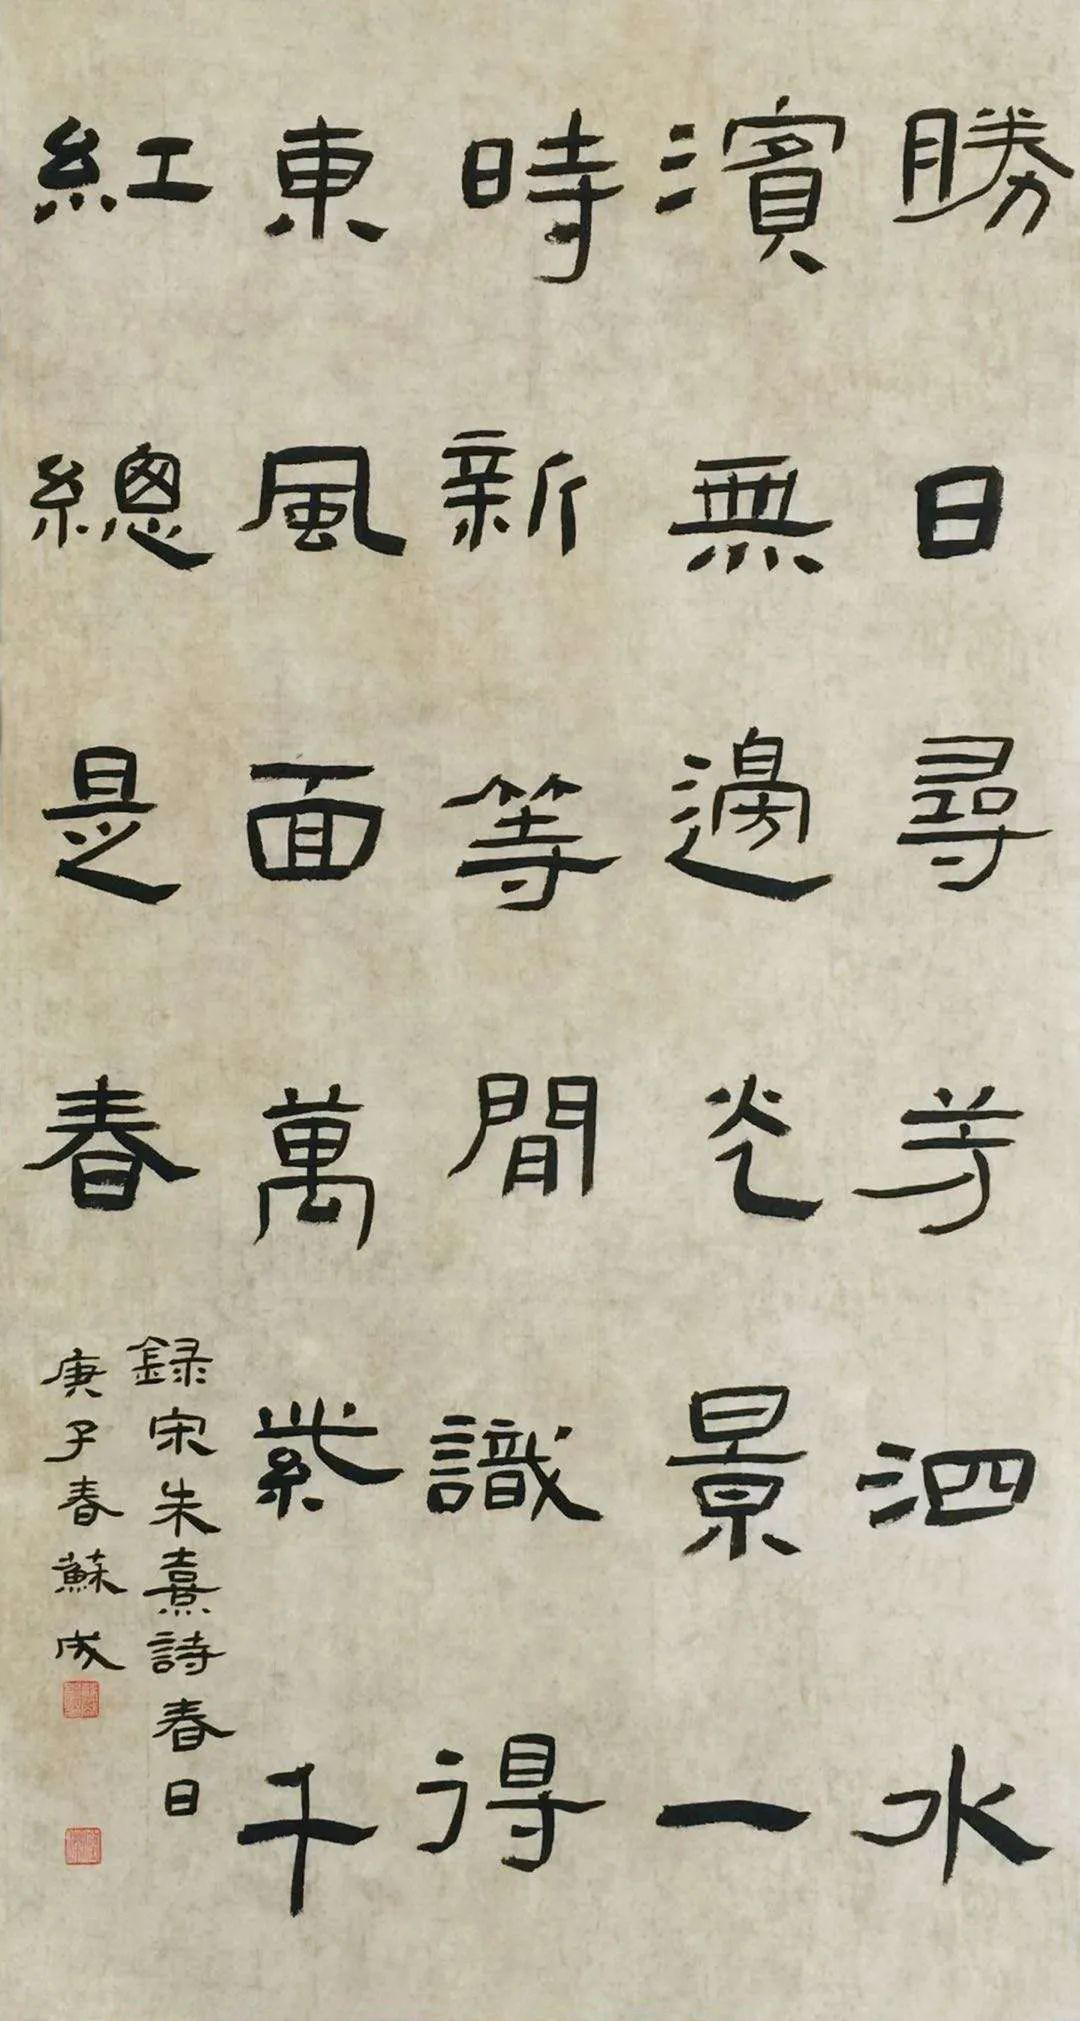 勝日尋芳泗水
濱無邊光景一
時新等閒識得
東風面萬紫千
紅總是春
録宋朱熹詩春日
庚子春蘇成